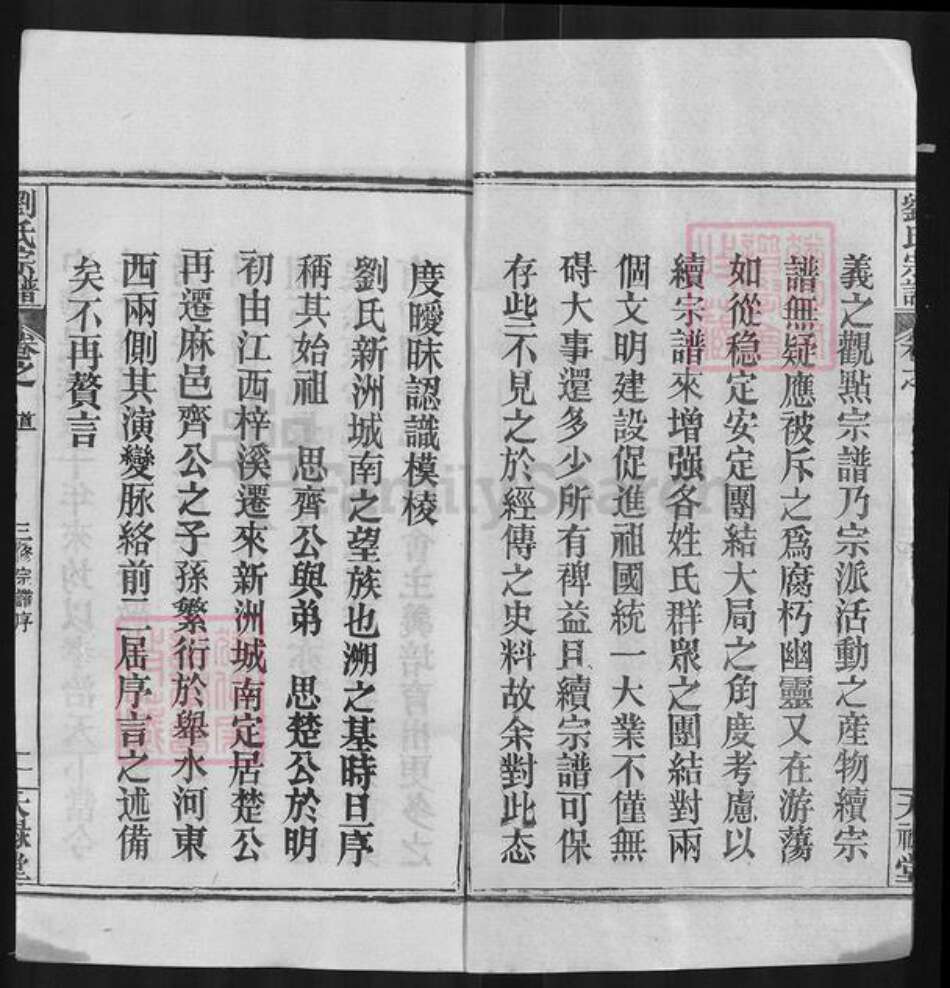 義之觀點宗譜乃宗派活動之産物續宗
譜無疑應被斥之爲腐朽幽靈又在游蕩
如從稳定安定團結大局之角度考慮以
續宗譜來增强各姓氏群眾之團結對兩
個文明建設促進祖國統一大業不僅無
碍大事還多少所有裨益且續宗譜可保
存些不見之於經傳之史料故余對此态
度曖昧認識模棱
劉氏新洲城南之望族也溯之基時日序
稱其始祖 思齊公與弟 思楚公於明
初由江西梓溪遷來新洲城南定居楚公
再遷麻邑齊公之子孫繁衍於舉水河東
西兩側其演變脉絡前二届序言之述備
矣不再贅言
劉氏宗譜
卷之
道
三修宗譜序
二
天祿堂
劉氏宗譜
卷之
天祿堂
FamilySearch